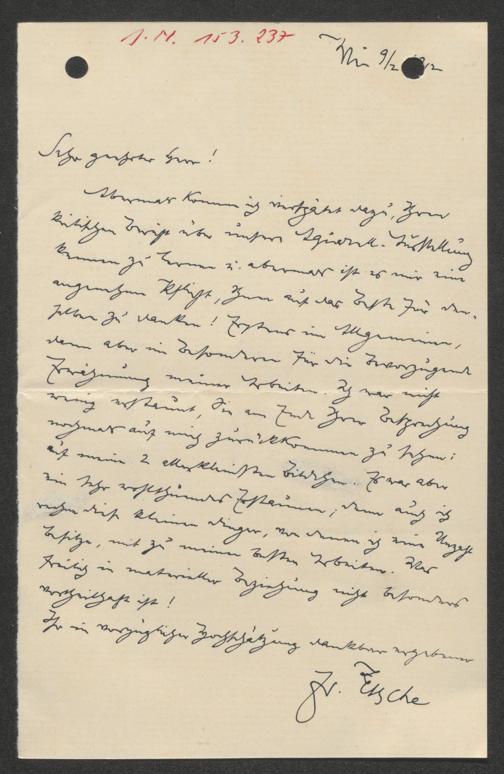 J. N. 153.237
Wien 9/2 1912
Sehr geehrter Herr!
Abermals komme ich verspätet dazu, Ihren
kritischen Bericht über unsere Aquarell-Ausstellung
kennen zu lernen u. abermals ist es mir eine
angenehme Pflicht, Ihnen auf das Beste für den-
selben zu danken! Erstens im Allgemeinen,
dann aber im Besondern für die bevorzugende
Erwähnung meiner Arbeiten. Ich war nicht
wenig erstaunt, Sie am Ende Ihrer Besprechung
nochmals auf mich zurückkommen zu sehen:
auf meine 2 allerkleinsten Bildchen. Es war aber
ein sehr wohlthuendes Erstaunen, denn auch ich
rechne diese kleinen Dinger, von denen ich eine Unzahl
besitze, mit zu meinen besten Arbeiten. Was
freilich in materieller Beziehung nicht besonders
vortheilhaft ist!
Ihr in vorzüglicher Hochschätzung dankbar ergebener